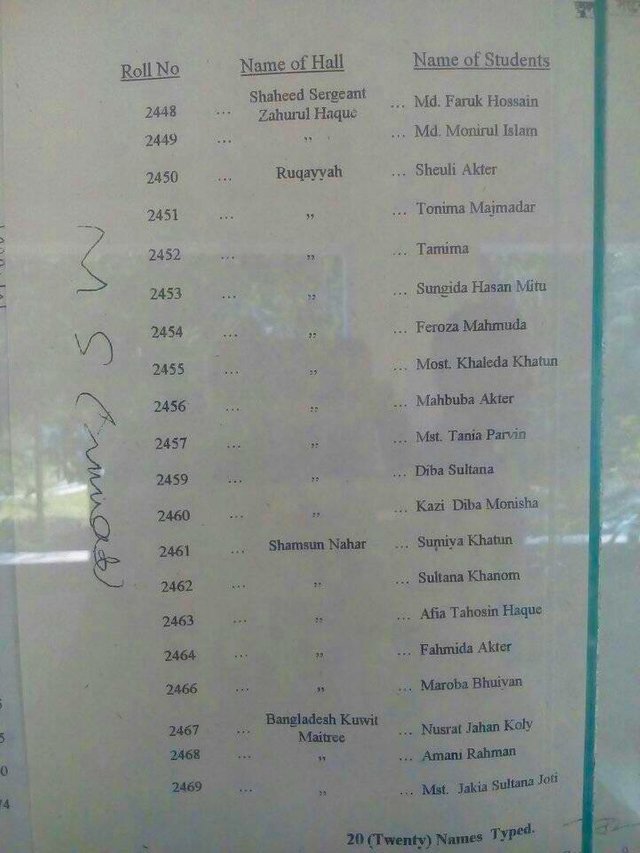 Roll No Name of Hall Name of Students
2448 ... Shaheed Sergeant Zahurul Haque ... Md. Faruk Hossain
2449 ... " ... Md. Monirul Islam
2450 ... Ruqayyah ... Sheuli Akter
2451 ... " ... Tonima Majmadar
2452 ... " ... Tamima
2453 ... " ... Sungida Hasan Mitu
2454 ... " ... Feroza Mahmuda
2455 ... " ... Most. Khaleda Khatun
2456 ... " ... Mahbuba Akter
2457 ... " ... Mst. Tania Parvin
2459 ... " ... Diba Sultana
2460 ... " ... Kazi Diba Monisha
2461 ... Shamsun Nahar ... Sumiya Khatun
2462 ... " ... Sultana Khanom
2463 ... " ... Afia Tahosin Haque
2464 ... " ... Fahmida Akter
2466 ... " ... Maroba Bhuivan
2467 ... Bangladesh Kuwit Maitree ... Nusrat Jahan Koly
2468 ... " ... Amani Rahman
2469 ... " ... Mst. Jakia Sultana Joti
20 (Twenty) Names Typed.